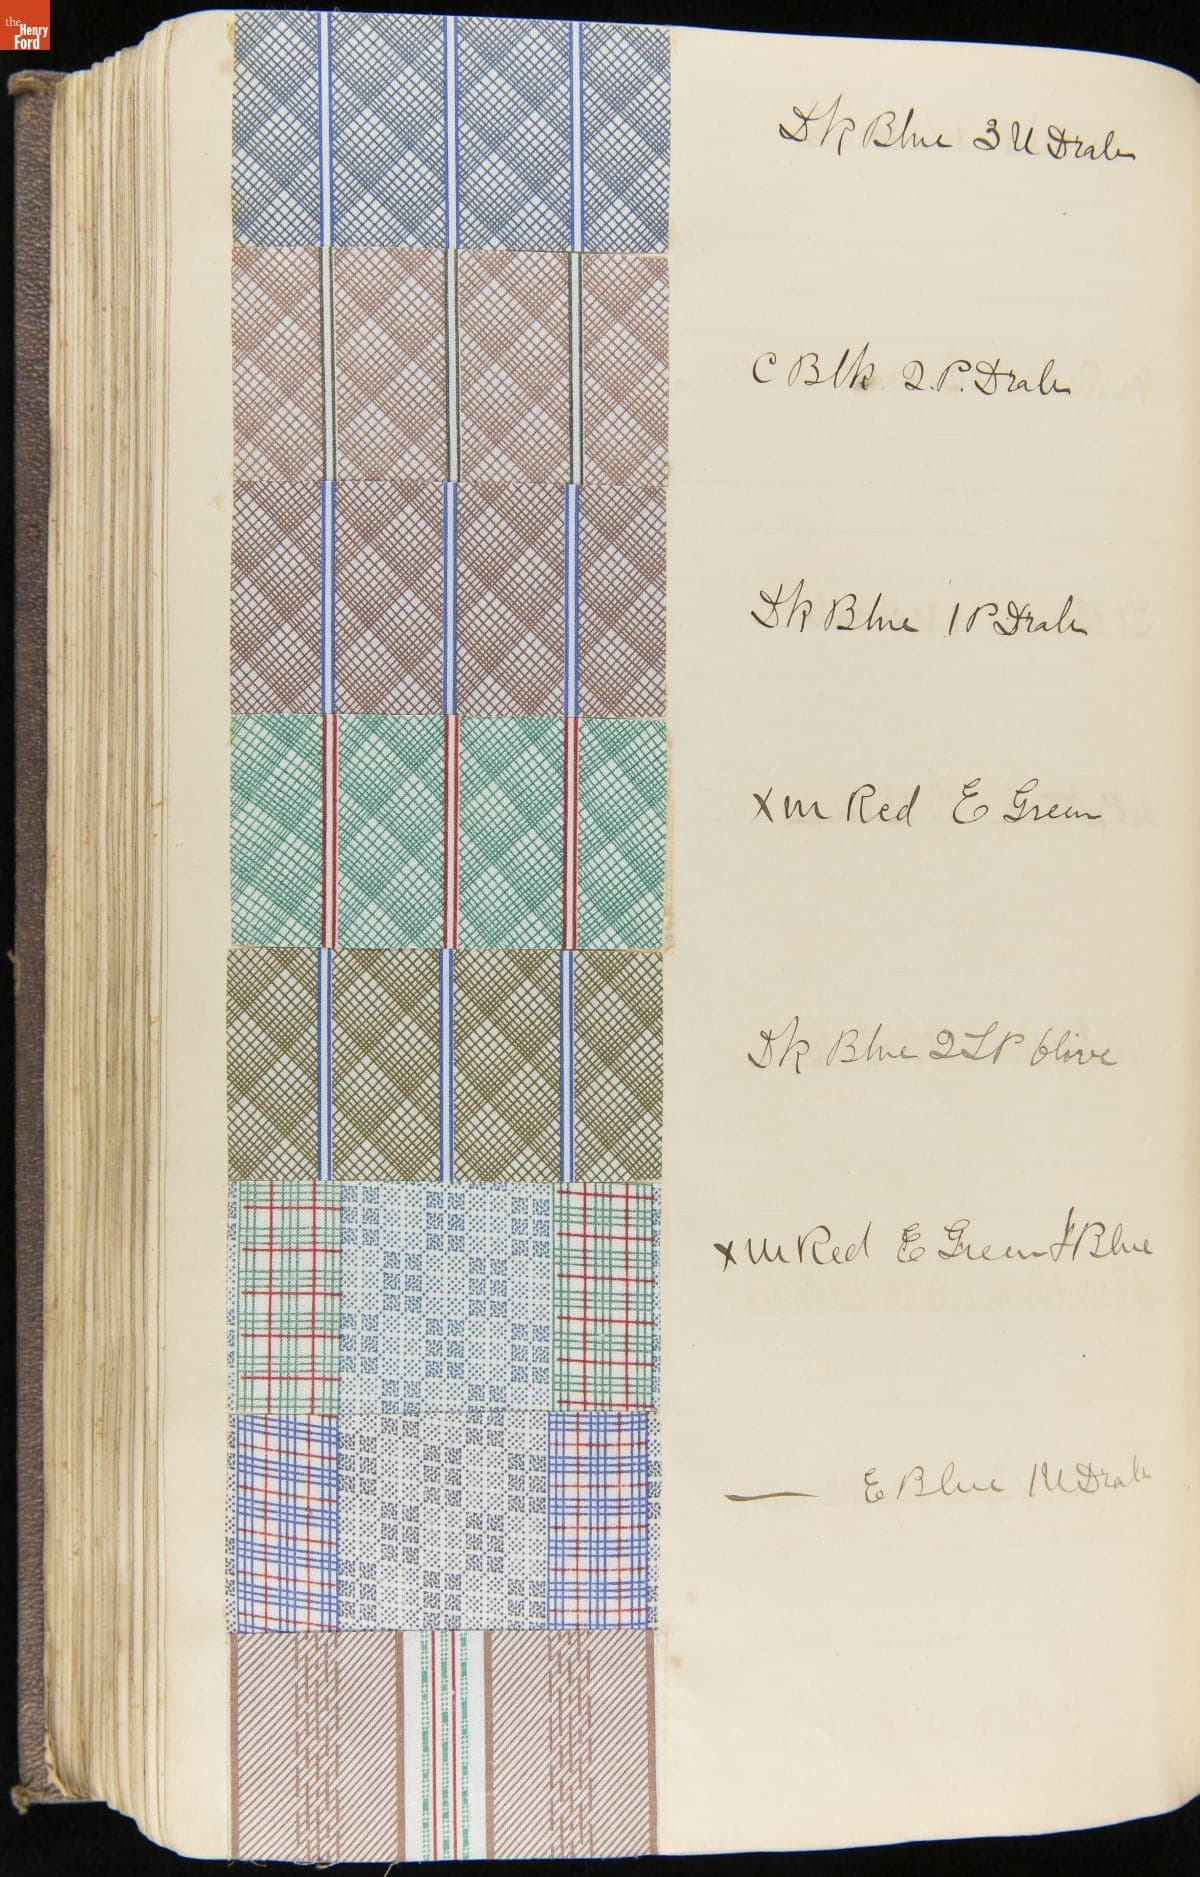 the
Henry
Ford
Dk Blue 3 U Drab
C Blk. 2. P. Drab
Dk Blue 1 P Drab
x m Red E Green
Dk Blue 2 L P Olive
x m Red E Green Blue
— E Blue 1 U Drab